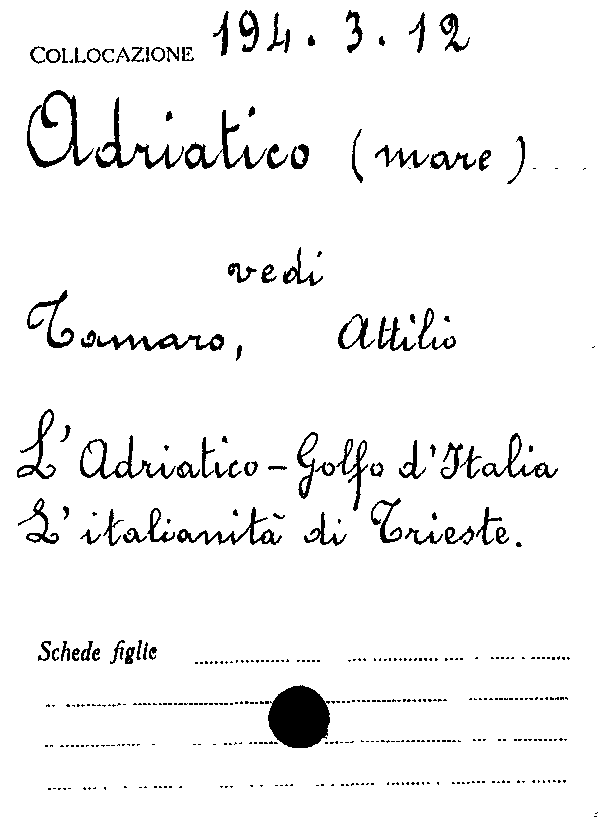 COLLOCAZIONE 194.3.12
Adriatico (mare)
vedi
Tamaro, Attilio
L'Adriatico - Golfo d'Italia
L'italianità di Trieste.
Schede figlie